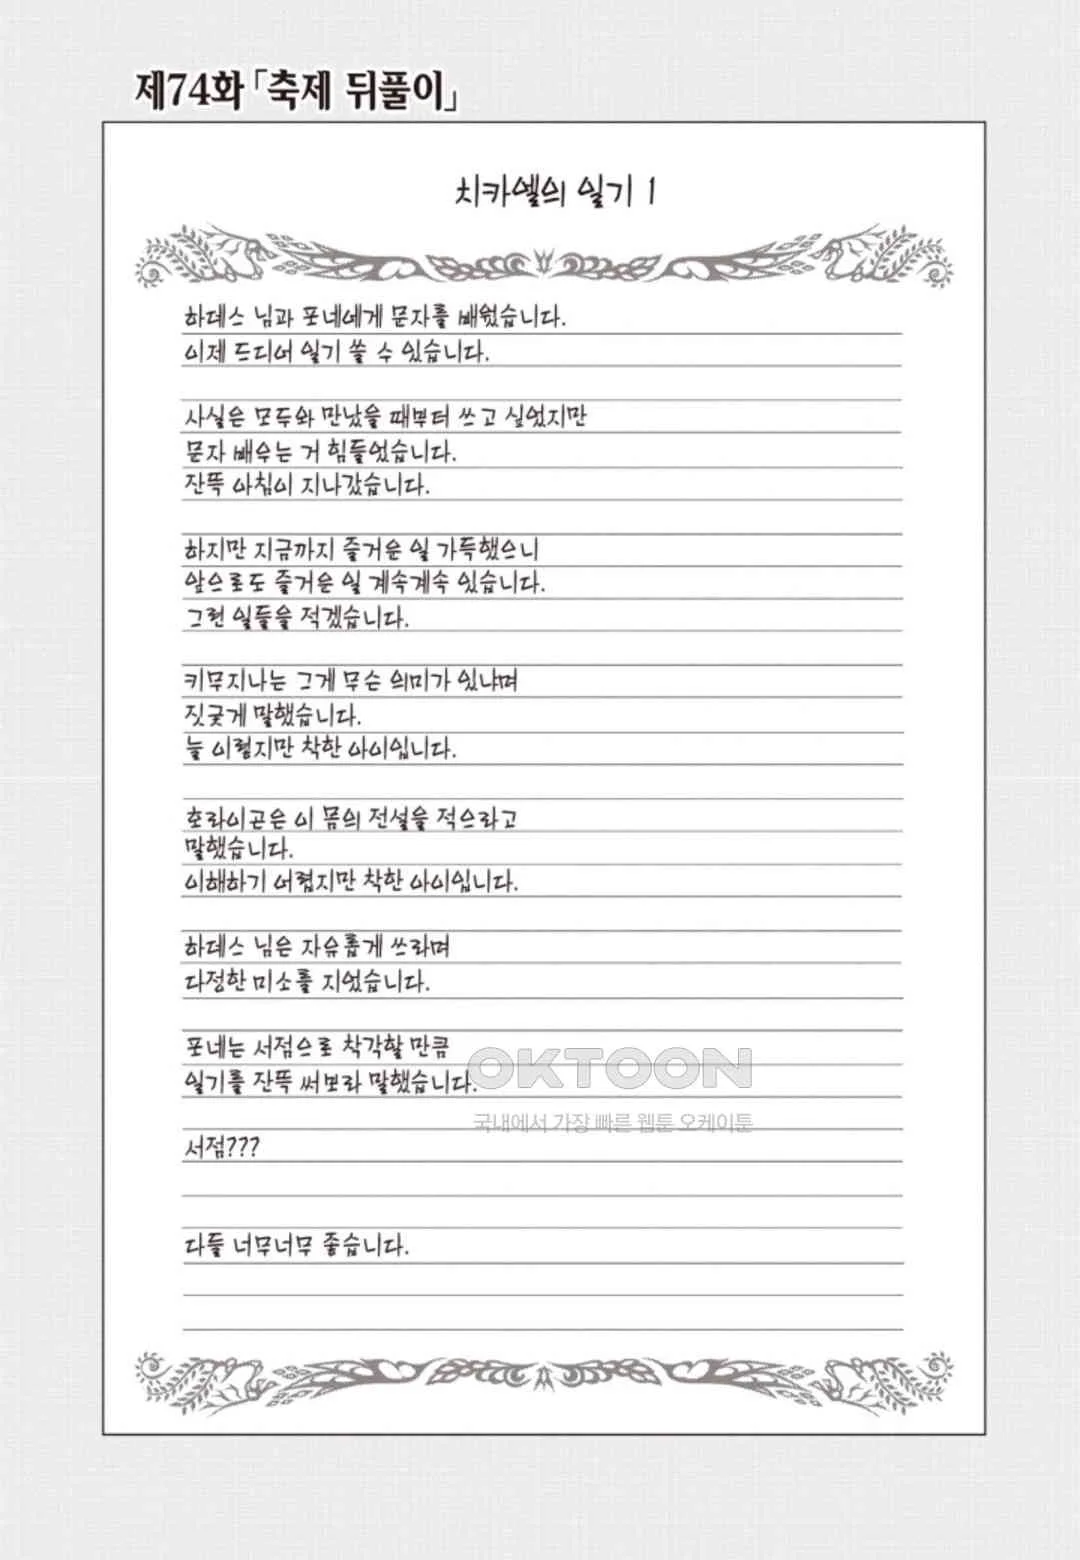 제74화 「축제 뒤풀이」
치카엘의 일기 1
하데스 님과 포네에게 문자를 배웠습니다.
이제 드디어 일기 쓸 수 있습니다.
사실은 모두와 만났을 때부터 쓰고 싶었지만
문자 배우는 거 힘들었습니다.
잔뜩 아침이 지나갔습니다.
하지만 지금까지 즐거운 일 가득했으니
앞으로도 즐거운 일 계속계속 있습니다.
그런 일들을 적겠습니다.
키무지나는 그게 무슨 의미가 있냐며
짓궂게 말했습니다.
늘 이렇지만 착한 아이입니다.
호라이곤은 이 몸의 전설을 적으라고
말했습니다.
이해하기 어렵지만 착한 아이입니다.
하데스 님은 자유롭게 쓰라며
다정한 미소를 지었습니다.
포네는 서점으로 착각할 만큼
일기를 잔뜩 써보라 말했습니다.
OKTOON
국내에서 가장 빠른 웹툰 오케이툰
서점???
다들 너무너무 좋습니다.